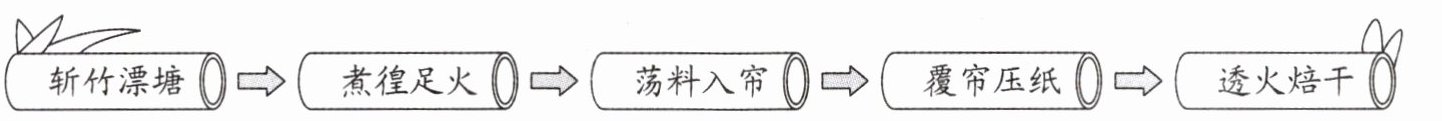 斩竹漂塘 煮徨足火 荡料入帘 覆帘压纸 透火焙干